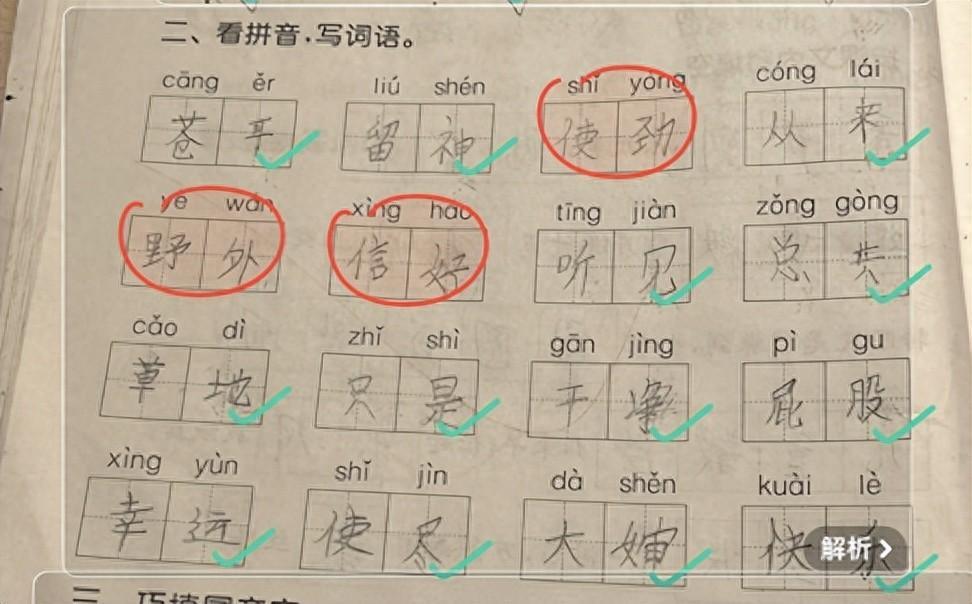 二、看拼音,写词语。
cāng ěr liú shén shǐ yòng cóng lái
苍耳 留神 使劲 从来
yě wán xìng hǎo tīng jiàn zǒng gòng
野外 信好 听见 总共
cǎo dì zhǐ shì gān jìng pì gu
草地 只是 干净 屁股
xìng yùn shǐ jìn dà shěn kuài lè
幸远 使尽 大婶 快乐
解析 >